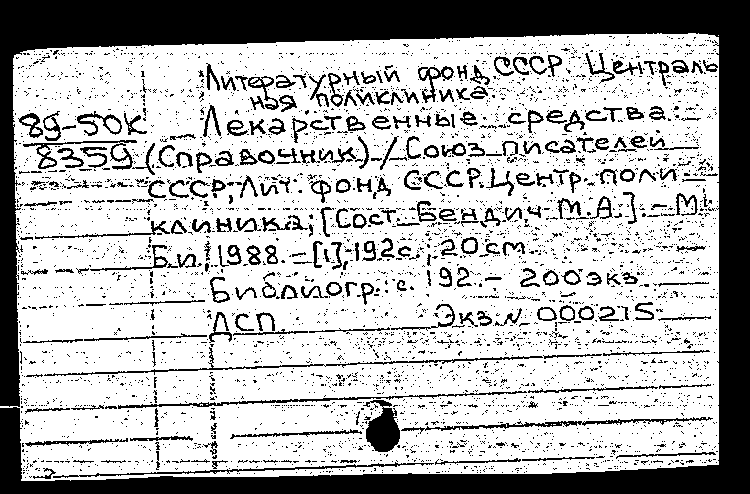 Литературный фонд СССР. Централь
ная поликлиника.
89-50К
8359
Лекарственные средства:
(Справочник) / Союз писателей
СССР; Лит. фонд СССР. Центр. поли-
клиника; [Сост. Бендич М.А.]. - М.:
Б.и., 1988. - [1], 192с.; 20см.
Библиогр.: с. 192. - 200экз.
ДСП. Экз. N 000215